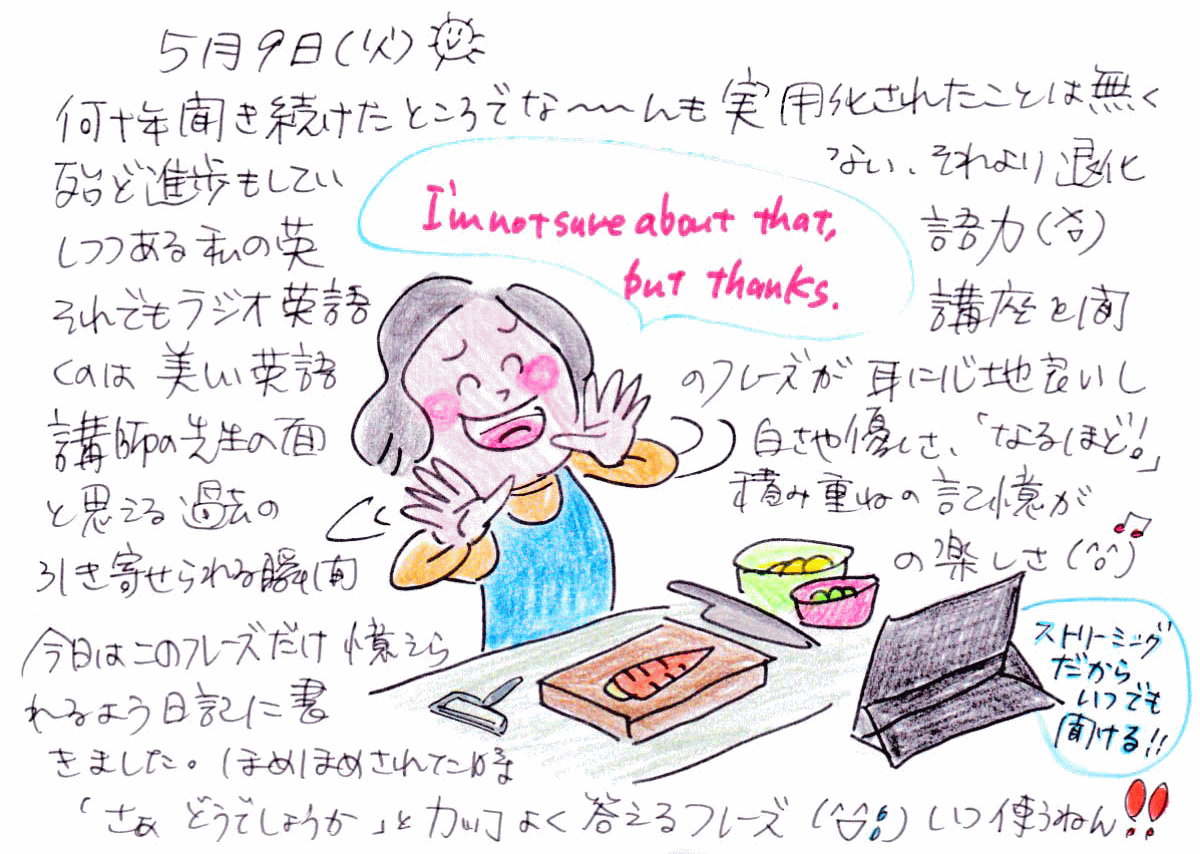 5月9日(火)
何十年聞き続けたところでな〜〜んも実用化されたことは無く
殆ど進歩もしてい ない、それより退化
しつつある私の英 語力(笑)
それでもラジオ英語 講座を聞
くのは美しい英語 のフレーズが耳に心地良いし
講師の先生の面 白さや優しさ、「なるほど!」
と思える過去の 積み重ねの記憶が
引き寄せられる瞬間 の楽しさ(^o^)♫
I'm not sure about that,
but thanks.
今日はこのフレーズだけ憶えら
れるよう日記に書
きました。ほめほめされた時は
「さぁどうでしょうか」とカッコよく答えるフレーズ(^o^;)いつ使うねん!!
ストリーミング
だから
いつでも
聞ける!!